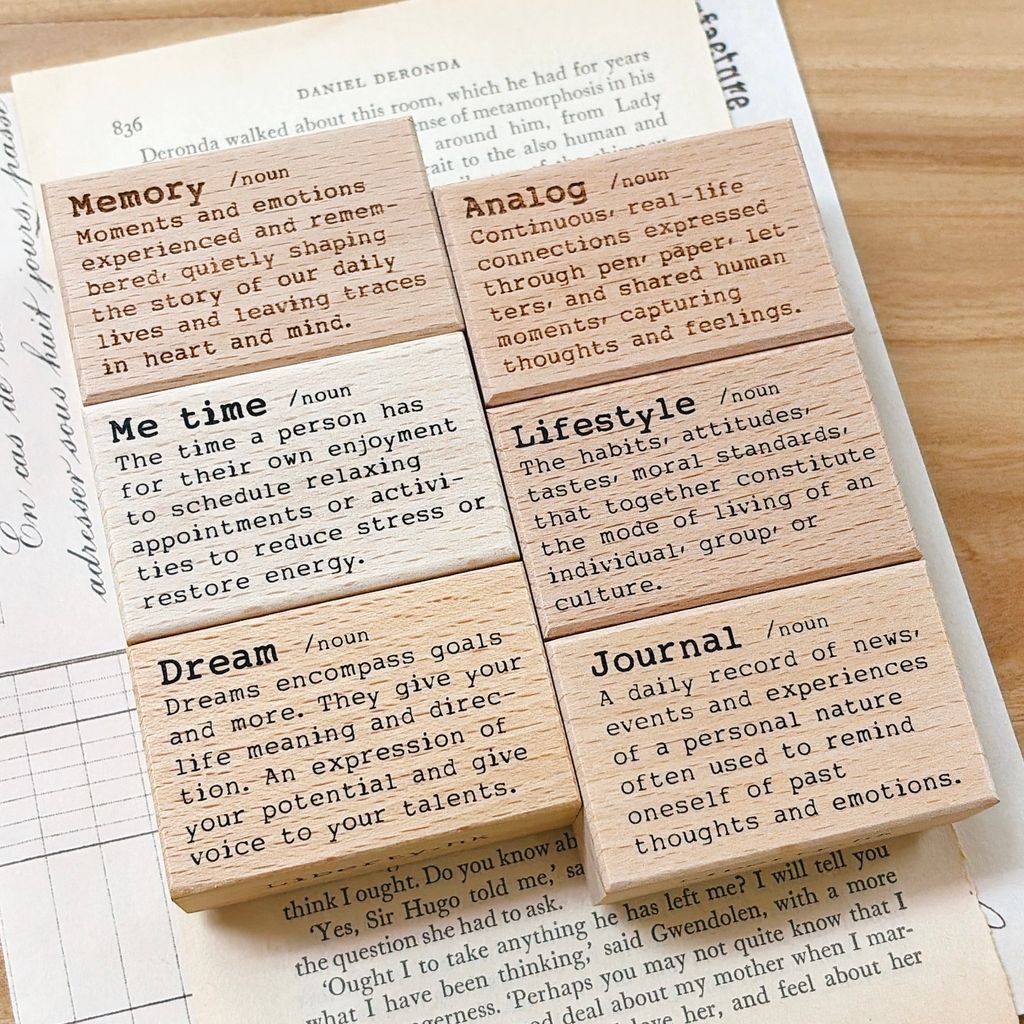 DANIEL DERONDA
836
Deronda walked about this room, which he had for years
nse of metamorphosis in his
around him, from Lady
rait to the also human and
of the
facture
En cas de
adresser sous huit jours, passé
Memory /noun
Moments and emotions
experienced and remem-
bered, quietly shaping
the story of our daily
lives and leaving traces
in heart and mind.
Analog /noun
Continuous, real-life
connections expressed
through pen, paper, let-
ters, and shared human
moments, capturing
thoughts and feelings.
Me time /noun
The time a person has
for their own enjoyment
to schedule relaxing
appointments or activi-
ties to reduce stress or
restore energy.
Lifestyle /noun
The habits, attitudes,
tastes, moral standards,
that together constitute
the mode of living of an
individual, group, or
culture.
Dream /noun
Dreams encompass goals
and more. They give your
life meaning and direc-
tion. An expression of
your potential and give
voice to your talents.
Journal /noun
A daily record of news,
events and experiences
of a personal nature
often used to remind
oneself of past
thoughts and emotions.
think I ought. Do you know ab
'Yes, Sir Hugo told me,' sa
has left me? I will tell you
the question she had to ask.
'Ought I to take anything he
said Gwendolen, with a more
what I have been thinking,'
gerness. 'Perhaps you may not quite know that I
d deal about my mother when I mar-
her, and feel about her